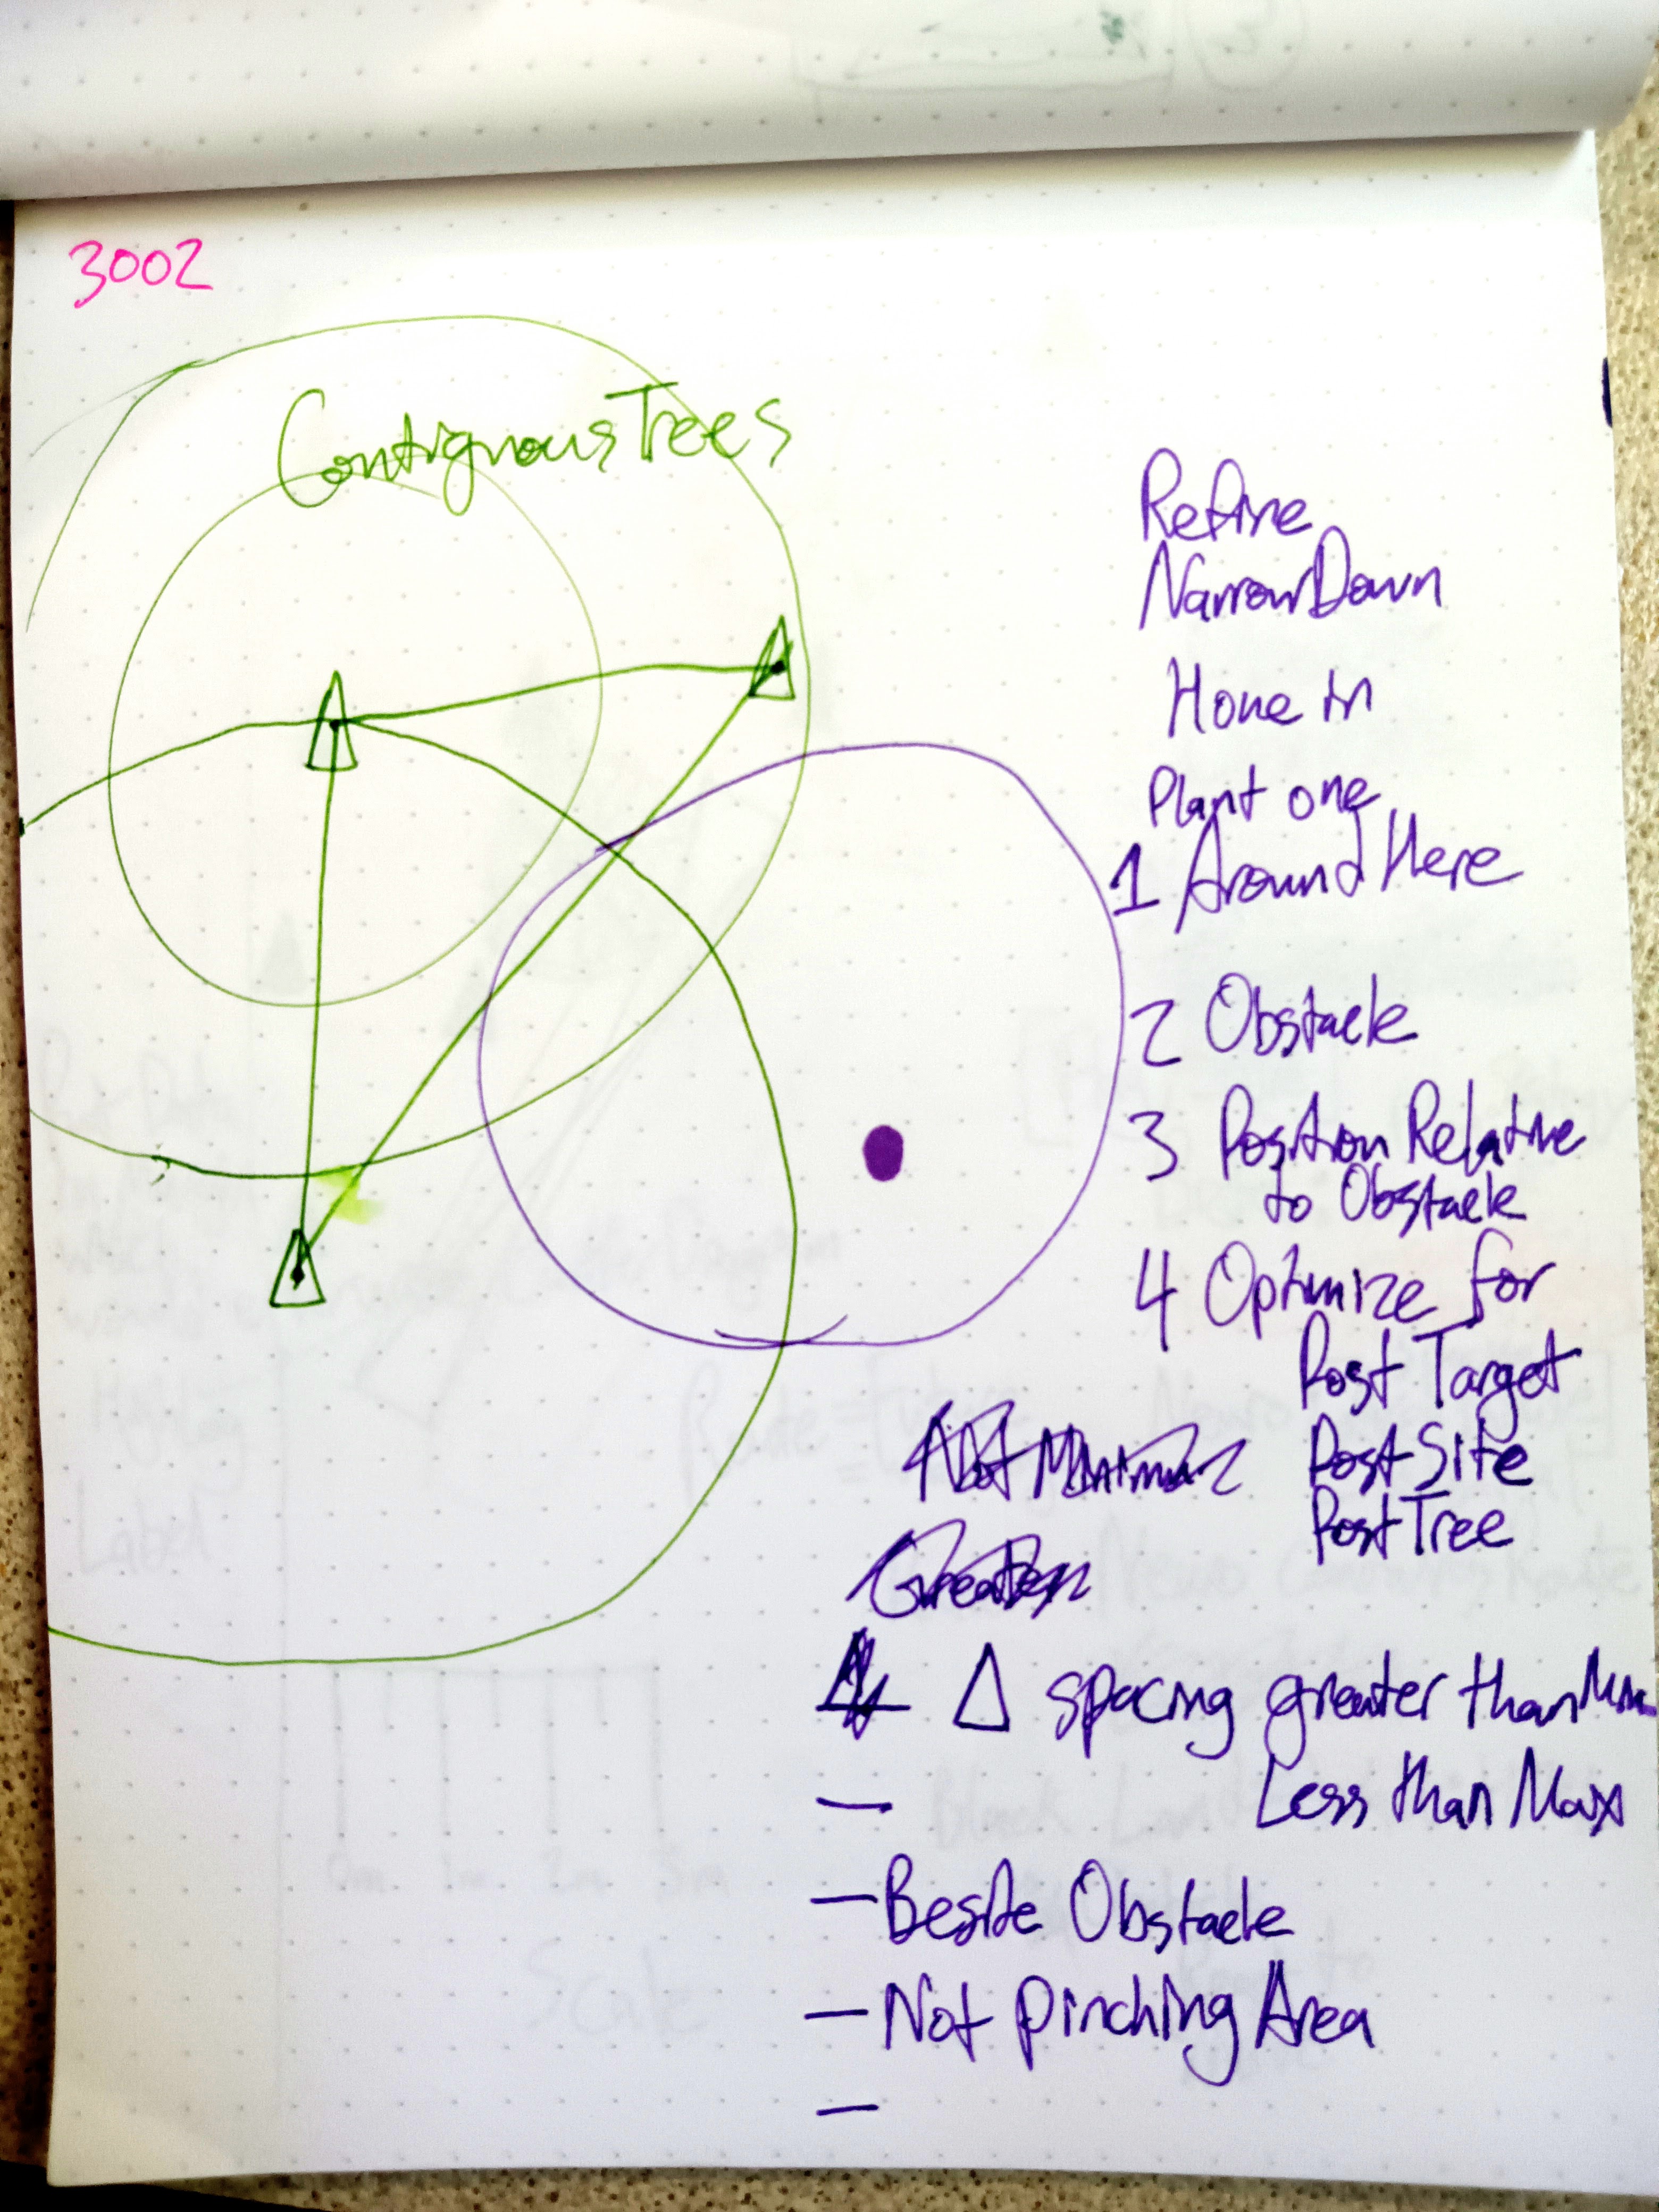 3002
Contiguous Trees
Refine
Narrow Down
Hone in
Plant one
1 Around Here
2 Obstacle
3 Position Relative
to Obstacle
4 Optimize for
Post Target
Post Site
Post Tree
Not Minimum
Greater
Δ spacing greater than Min
— Less than Max
— Beside Obstacle
— Not pinching Area
—